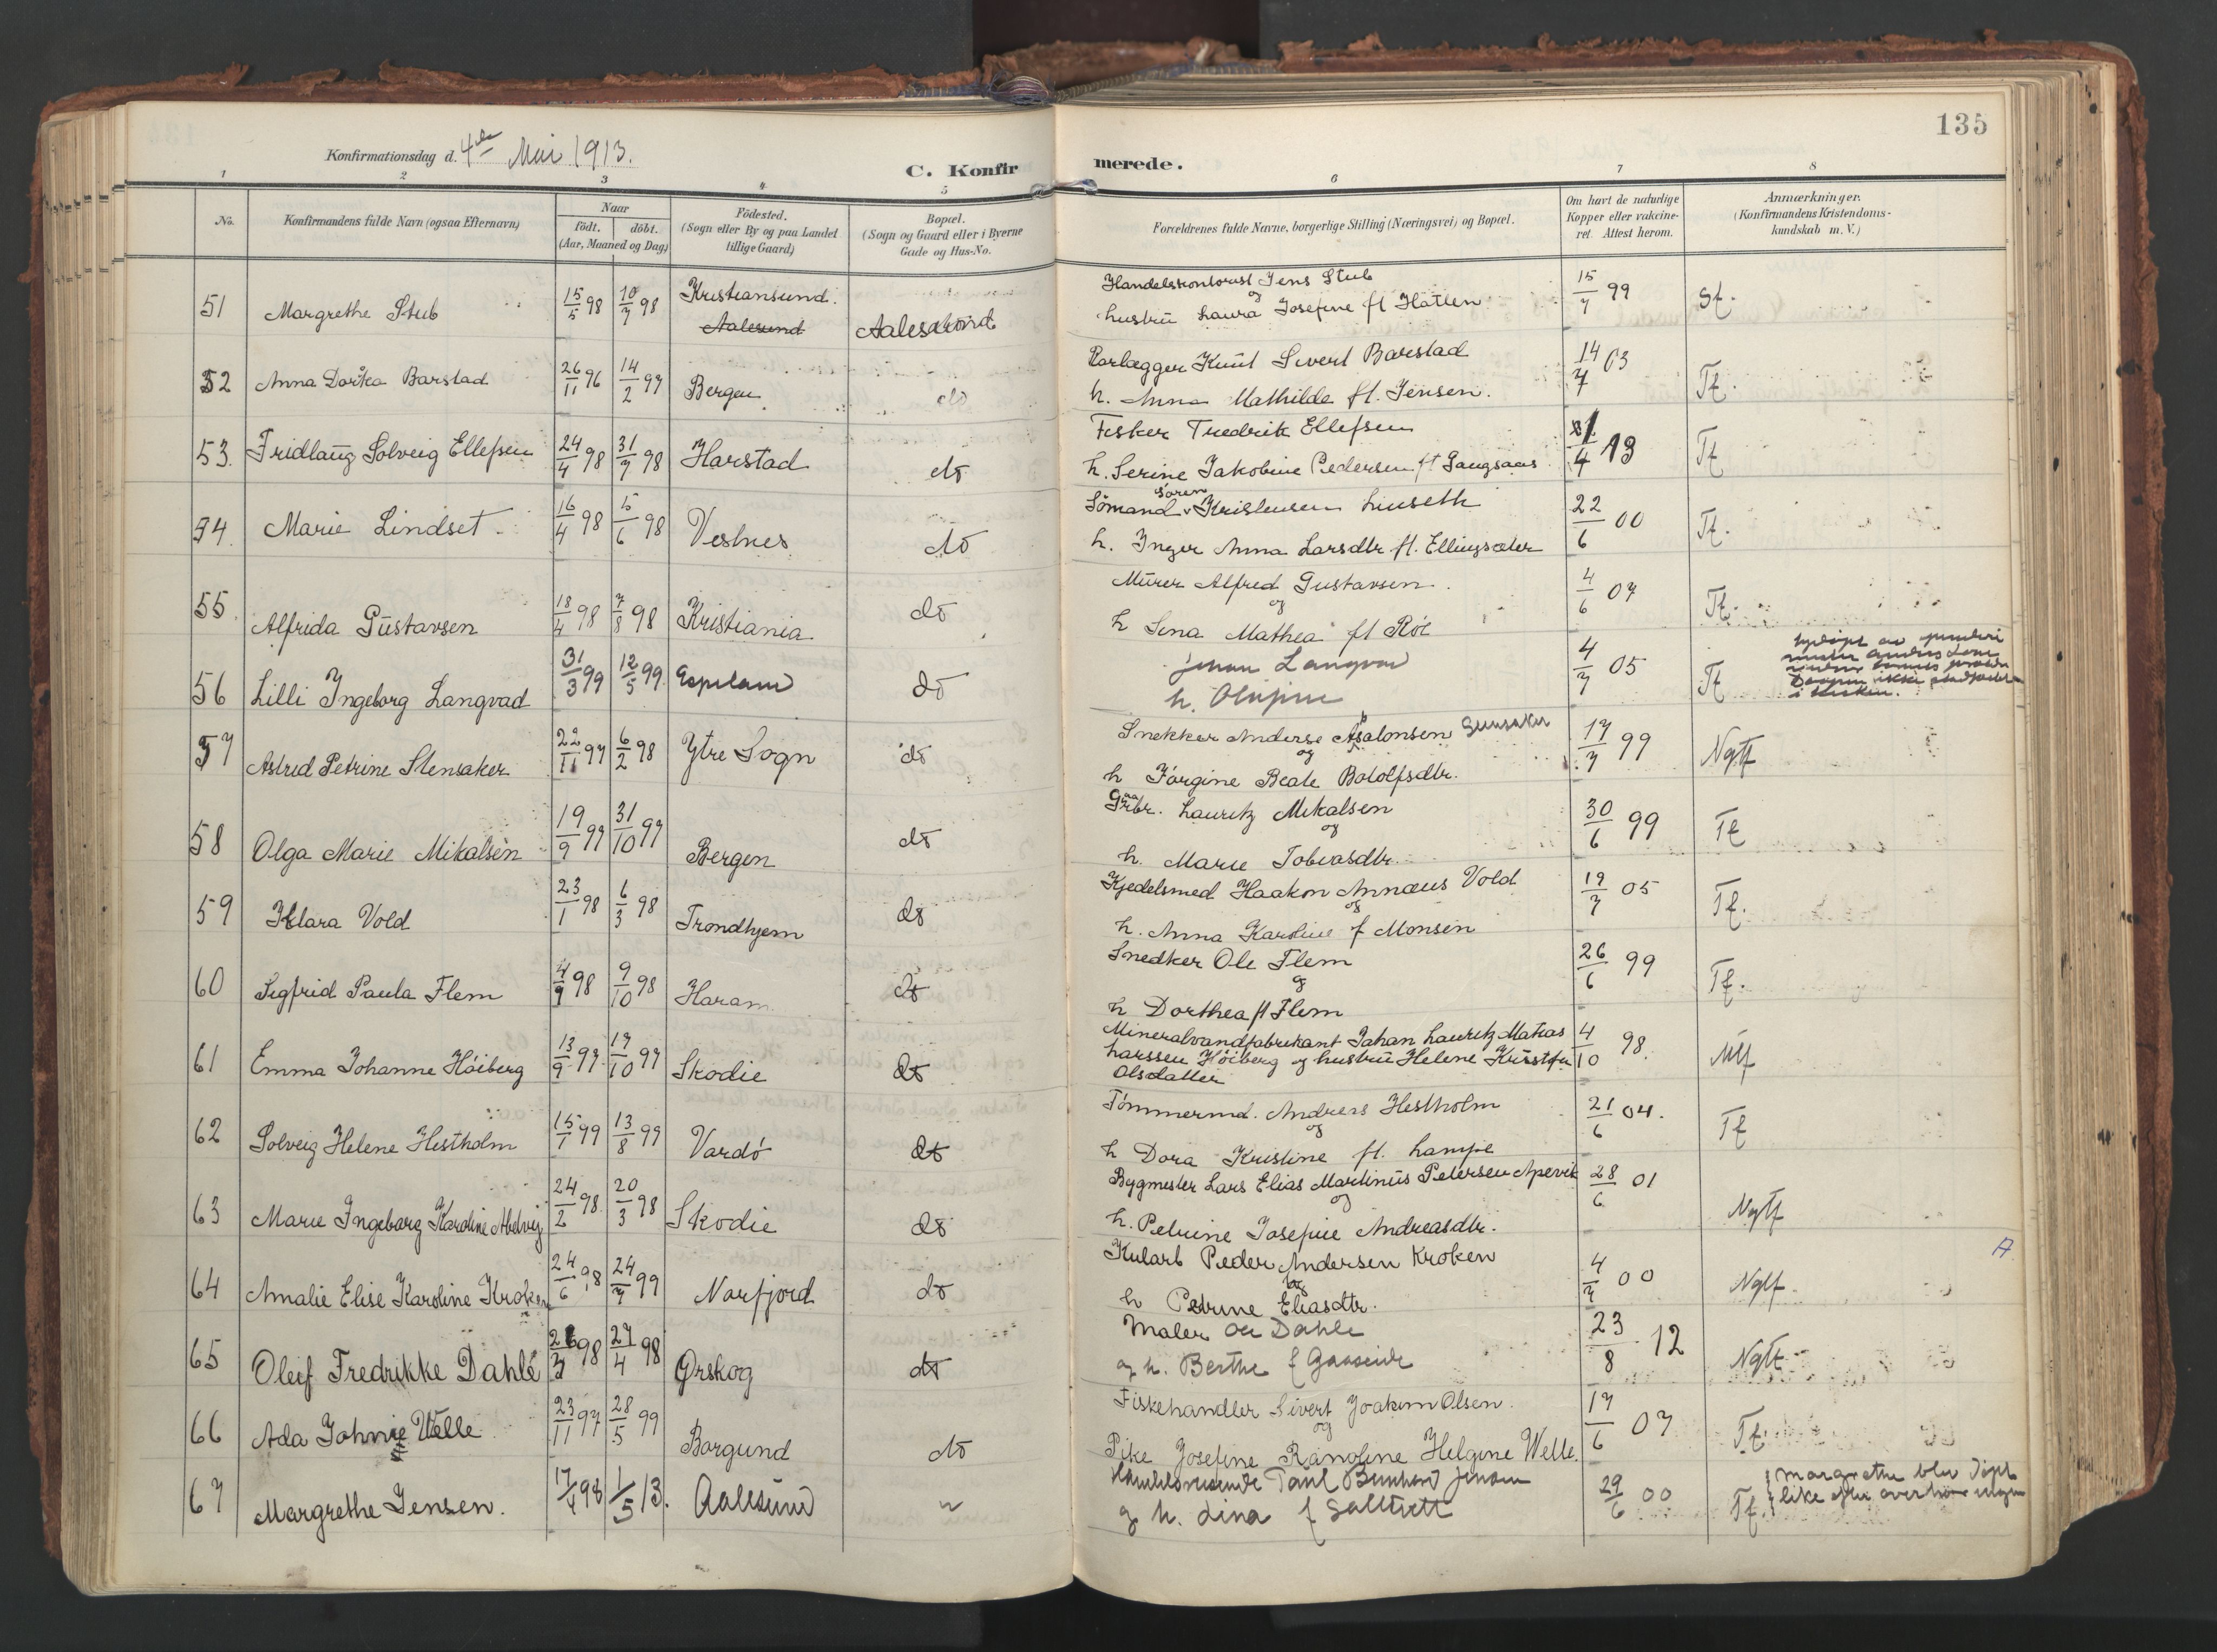 135
Konfirmationsdag d. 4de Mai 1913.
C. Konfirmerede.
1 2 3 4 5 6 7 8
No.
Konfirmandens fulde Navn (ogsaa Efternavn)
Naar
født. døbt.
(Aar, Maaned og Dag)
Fødested.
(Sogn eller By og paa Landet
tillige Gaard)
Bopæl.
(Sogn og Gaard eller i Byerne
Gade og Hus-No.
Forældrenes fulde Navne, borgerlige Stilling (Næringsvei) og Bopæl.
Om havt de naturlige
Kopper eller vakcine-
ret. Attest herom.
Anmærkninger.
(Konfirmandens Kristendoms-
kundskab m. V.)
51 Margrethe Stub 15/5 98 10/7 98 Kristiansund. Aalesund Aalesund Handelskontorist Jens Stub 15/7 99 Sf.
og
hustru Laura Josefine ft Hatlen
52 Anna Dorkea Barstad 26/11 96 14/2 97 Bergen do Rørlægger Knut Sivert Barstad 14/7 03 Tf.
h. Anna Mathilde ft. Jensen.
53. Fridlaug Solveig Ellefsen 24/4 98 31/7 98 Harstad do Fisker Fredrik Ellefsen 1/4 13 Tf
h. Serine Jakobine Pedersen ft Langsaas
54. Marie Lindset. 16/4 98 5/6 98 Vestnes do Sømand Søren Kristensen Linseth 22/6 00 Tf.
h. Inger Anna Larsdtr ft. Ellingsæter
55. Alfrida Gustavsen 18/4 98 7/8 98 Kristiania do Murer Alfred Gustavsen. 4/6 07 Tf.
og
h Lina Mathea ft Röe
56 Lilli Ingeborg Langvad 31/3 99 12/5 99 do Johan Langvad 4/7 05 Tf
h.
57 Astrid Petrine Stensaker 22/11 97 6/2 98 Ytre Sogn do Snekker Anderse Asalonsen 17/7 99 Ngtf
og
h Jørgine Beate Botolfsdtr.
58 Olga Marie Mikalsen 19/9 97 31/10 97 Bergen do Lauritz Mikalsen 30/6 99 Tf
og
h. Marie Tobiasdtr.
59 Klara Vold 23/1 98 6/3 98 Trondhjem do Kjedelsmed Haakon Annæus Vold 19/7 05 Tf.
og
h. Anna Karoline f Monsen
60 Sigfrid Paula Flem 4/9 98 9/10 98 Haram do Snedker Ole Flem 26/6 99 Tf.
og
h Dorthea ft Flem
61 Emma Johanne Høiberg 13/9 97 17/10 97 Skodje do Mineralvandfabrikant Johan Lauritz Matias 4/10 98. Mtf
Larssen Høiberg og hustru Helene Kristine
Olsdatter
62 Solveig Helene Hestholm 15/1 99 13/8 99 Vardø do Tømmermd. Andreas Hestholm 21/6 04. Tf
og
h Dora Kristine ft. Lampe
63 Marie Ingeborg Karoline Abelvig 24/2 98 20/3 98 Skodje do Bygmester Lars Elias Martinus Petersen Apevik 28/6 01 Ngtf
og
h. Petrine Josefine Andreasdtr.
64 Amalie Elise Karoline Kroken 24/6 98 24/7 99 Norfjord do Kularb Peder Andersen Kroken 4/7 00 Ngtf.
og
h Petrine Eliasdtr.
65 Oluf Fredrikke Dahle 26/3 98 27/4 98 Ørskog do Maler Ole Dahle 23/8 12 Ngtf.
og h. Berthe f Gaaseide
66 Ada Johnie Welle 23/11 97 28/5 99 Borgund do Fiskehandler Sivert Joakim Olsen. 17/6 07 Tf.
og
Pike Josefine Ranoline Helgine Welle.
67 Margrethe Jensen. 17/4 98 1/5 13. Aalesund Handelsreisende Paul Jensen 29/6 00 Tf. Margrethe blev døpt
og h. Lina f like efter overhøringen